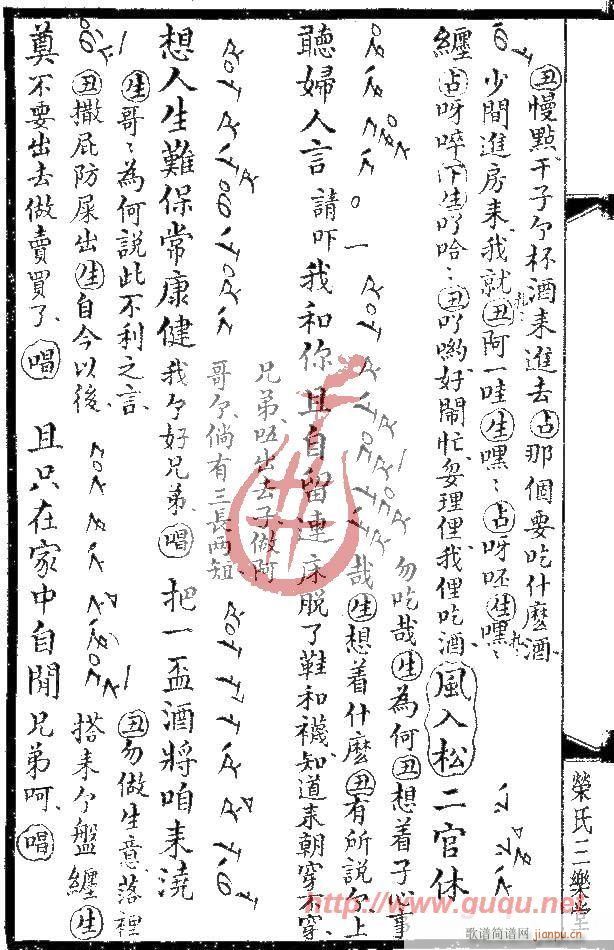 丑慢點干子个杯酒来進去占那個要吃什麽酒
少間進房来我就丑阿一哇生嘿〻占呀呸生嘿〻
纏占呀啐下生吖哈〻丑吖喲好鬧忙妥理俚我俚吃酒風入松二官休
勿吃哉生為何丑想着子心事
哉生想着什麽丑有所説个上
聽婦人言請吓我和你且自留連床脱了鞋和襪知道来朝穿不穿
兄弟呒出去子做阿
哥个倘有三長两短
想人生難保常康健我个好兄弟唱把一盃酒將咱来澆
生哥〻為何説此不利之言丑勿做生意落裡
丑撒屁防屎出生自今以後搭来个盤纏生
奠不要出去做賣買了唱且只在家中自閒兄弟呵唱
榮氏三樂堂
http://www.guqu.net
歌谱简谱网
jianpu.cn